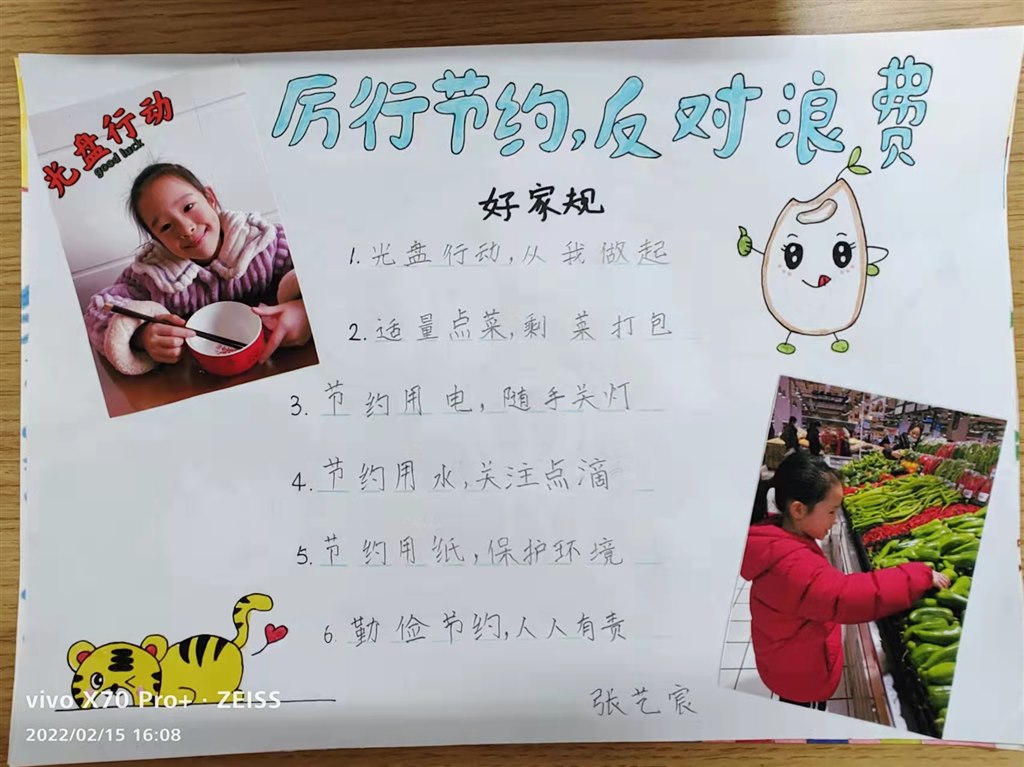 厉行节约,反对浪费
光盘行动
good luck
好家规
1.光盘行动,从我做起
2.适量点菜,剩菜打包
3.节约用电,随手关灯
4.节约用水,关注点滴
5.节约用纸,保护环境
6.勤俭节约,人人有责
张艺宸
vivo X70 Pro+ · ZEISS
2022/02/15 16:08